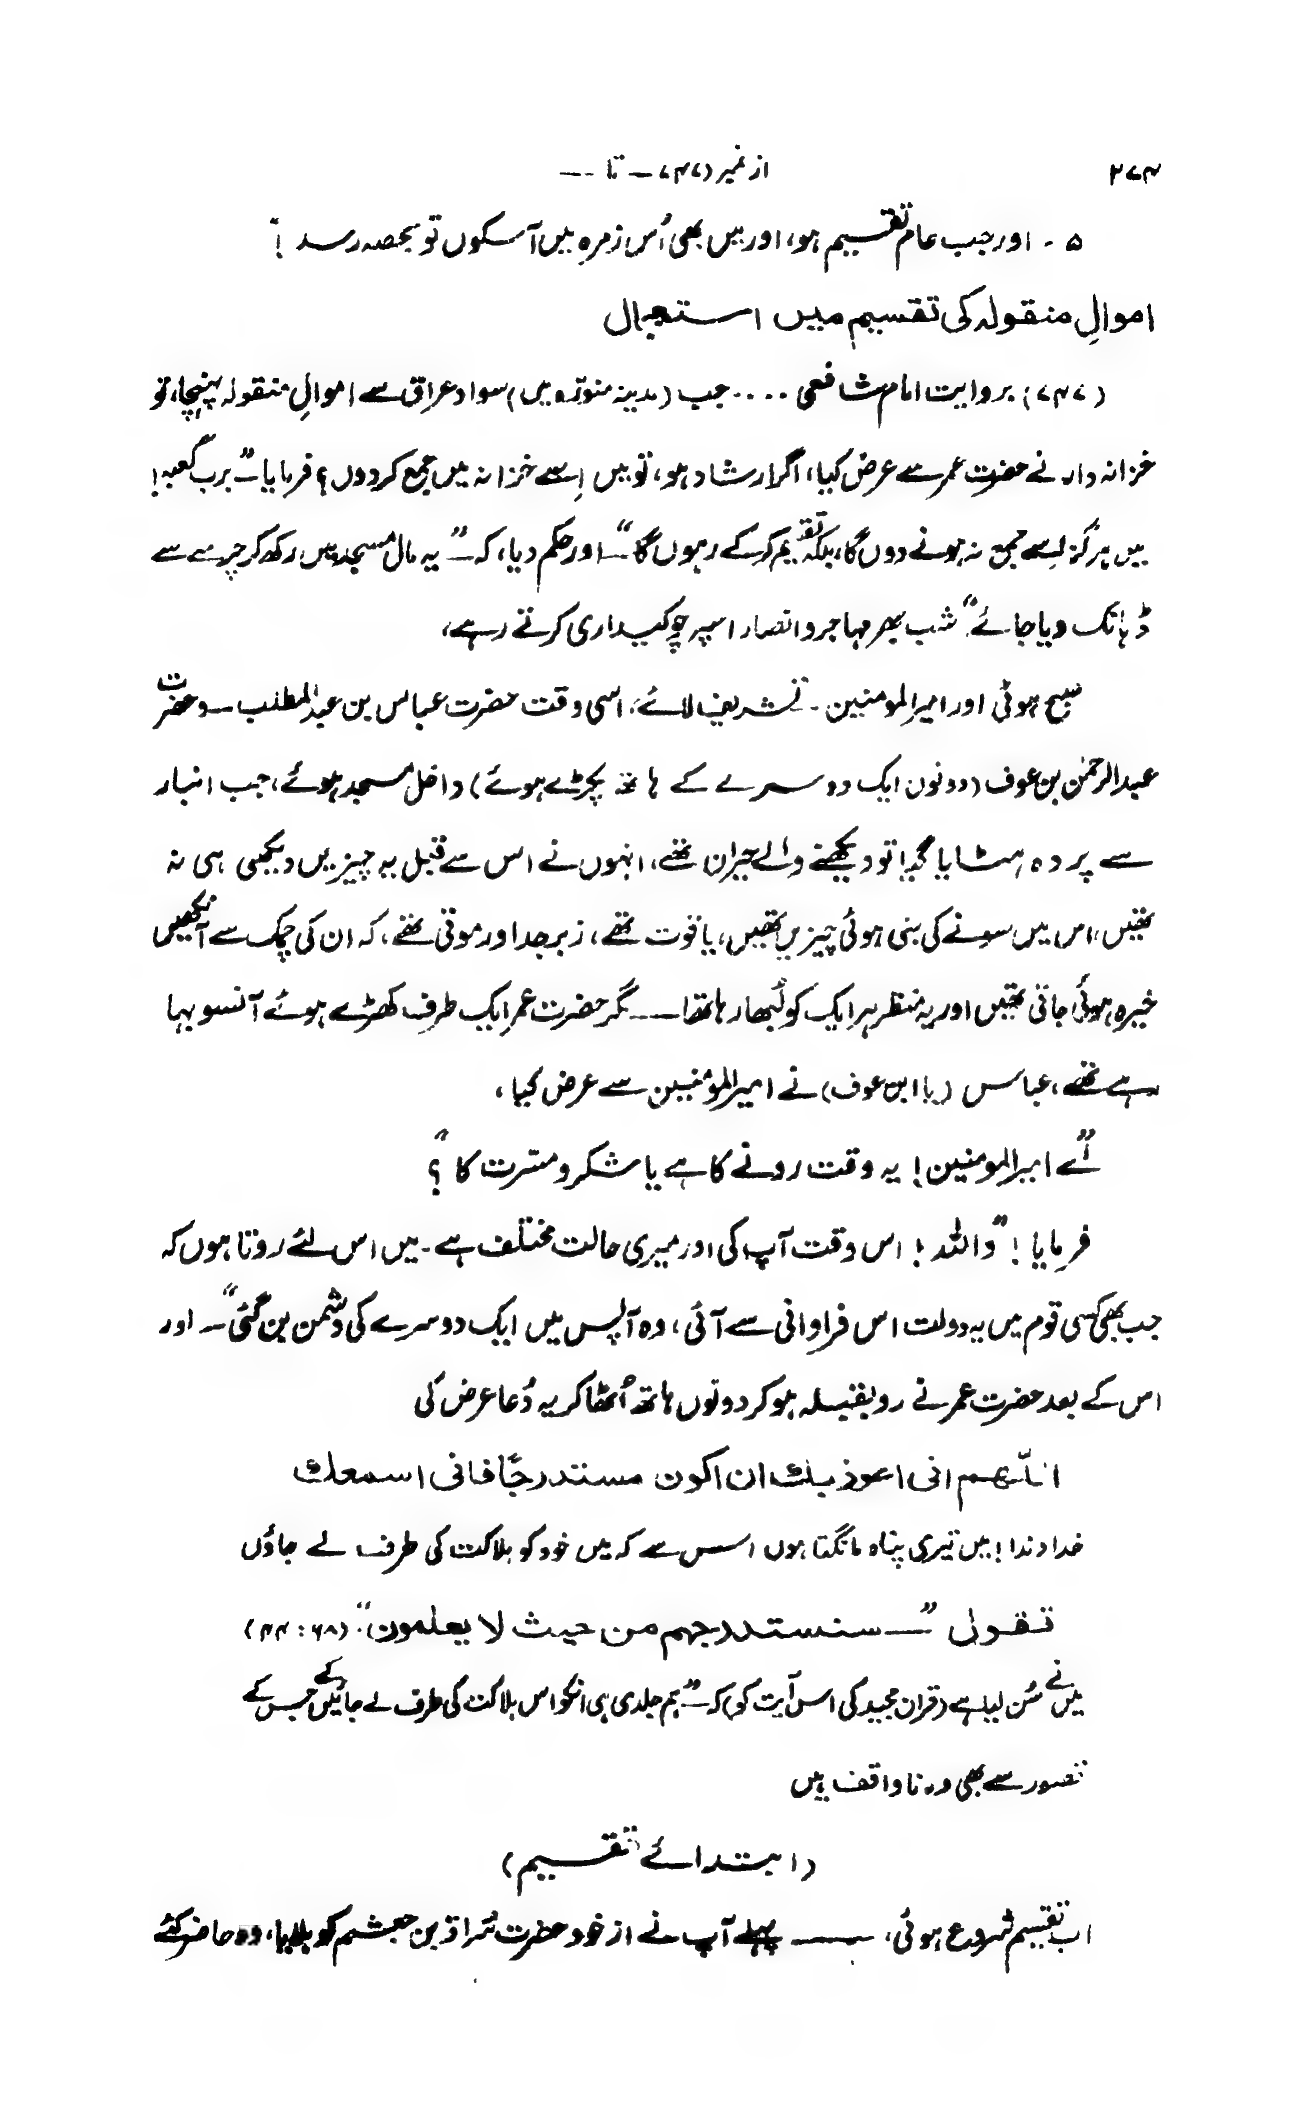 ۲۷۴ از نمبر (۷۴۷) — تا --
۵ - اور جب عام تقسیم ہو، اور میں بھی اُس زمرہ میں آ سکوں تو بحصہ رسد !"
اموالِ منقولہ کی تقسیم میں استعجال
(۷۴۷) بروایت امام شافعی .... جب (مدینہ منورہ میں) سواد عراق سے اموالِ منقولہ پہنچا، تو
خزانہ دار نے حضرت عمر سے عرض کیا، اگر ارشاد ہو، تو میں اِسے خزانہ میں جمع کر دوں؟ فرمایا — "برب کعبہ!
میں ہرگز اسے جمع نہ ہونے دوں گا، بلکہ تقسیم کر کے رہوں گا" — اور حکم دیا، کہ — "یہ مال مسجد میں رکھ کر چرمے سے
ڈہانک دیا جائے" شب بھر مہاجر و انصار اسپر چوکیداری کرتے رہے،
صبح ہوئی اور امیر المومنین - تشریف لائے، اسی وقت حضرت عباس بن عبد المطلب — و حضرت
عبد الرحمٰن بن عوف (دونوں ایک دوسرے کے ہاتھ پکڑے ہوئے) داخل مسجد ہوئے، جب انبار
سے پردہ ہٹایا گیا تو دیکھنے والے حیران تھے، انہوں نے اس سے قبل یہ چیزیں دیکھی ہی نہ
تھیں، اس میں سونے کی بنی ہوئی چیزیں تھیں، یاقوت تھے، زبرجد اور موتی تھے، کہ ان کی چمک سے آنکھیں
خیرہ ہوئی جاتی تھیں اور یہ منظر ہر ایک کو لُبھا رہا تھا — مگر حضرت عمر ایک طرف کھڑے ہوئے آنسو بہا
رہے تھے، عباس (یا ابن عوف) نے امیر المومنین سے عرض کیا،
"اے امیر المومنین! یہ وقت رونے کا ہے یا شکر و مسّرت کا؟"
فرمایا! "واللہ! اس وقت آپ کی اور میری حالت مختلف ہے - میں اس لئے روتا ہوں کہ
جب بھی کسی قوم میں یہ دولت اس فراوانی سے آئی، وہ آپس میں ایک دوسرے کی دشمن بن گئی" — اور
اس کے بعد حضرت عمر نے رو بقبلہ ہو کر دونوں ہاتھ اُٹھا کر یہ دُعا عرض کی
اللّٰهم انی اعوذ بك ان اکون مستدرجًا فانی اسمعك
خداوندا! میں تیری پناہ مانگتا ہوں اس سے کہ میں خود کو ہلاکت کی طرف لے جاؤں
تقول "— سنستدرجهم من حیث لا یعلمون". (۶۸ : ۴۴)
میں نے سُن لیا ہے (قران مجید کی اس آیت کو) کہ — "ہم جلدی ہی انکو اس ہلاکت کی طرف لے جائیں گے جس کے
تصور سے بھی وہ ناواقف ہیں
(ابتدائے تقسیم)
اب تقسیم شروع ہوئی، — پہلے آپ نے از خود حضرت سُراقہ بن جعشم کو بلایا، وہ حاضر کئے